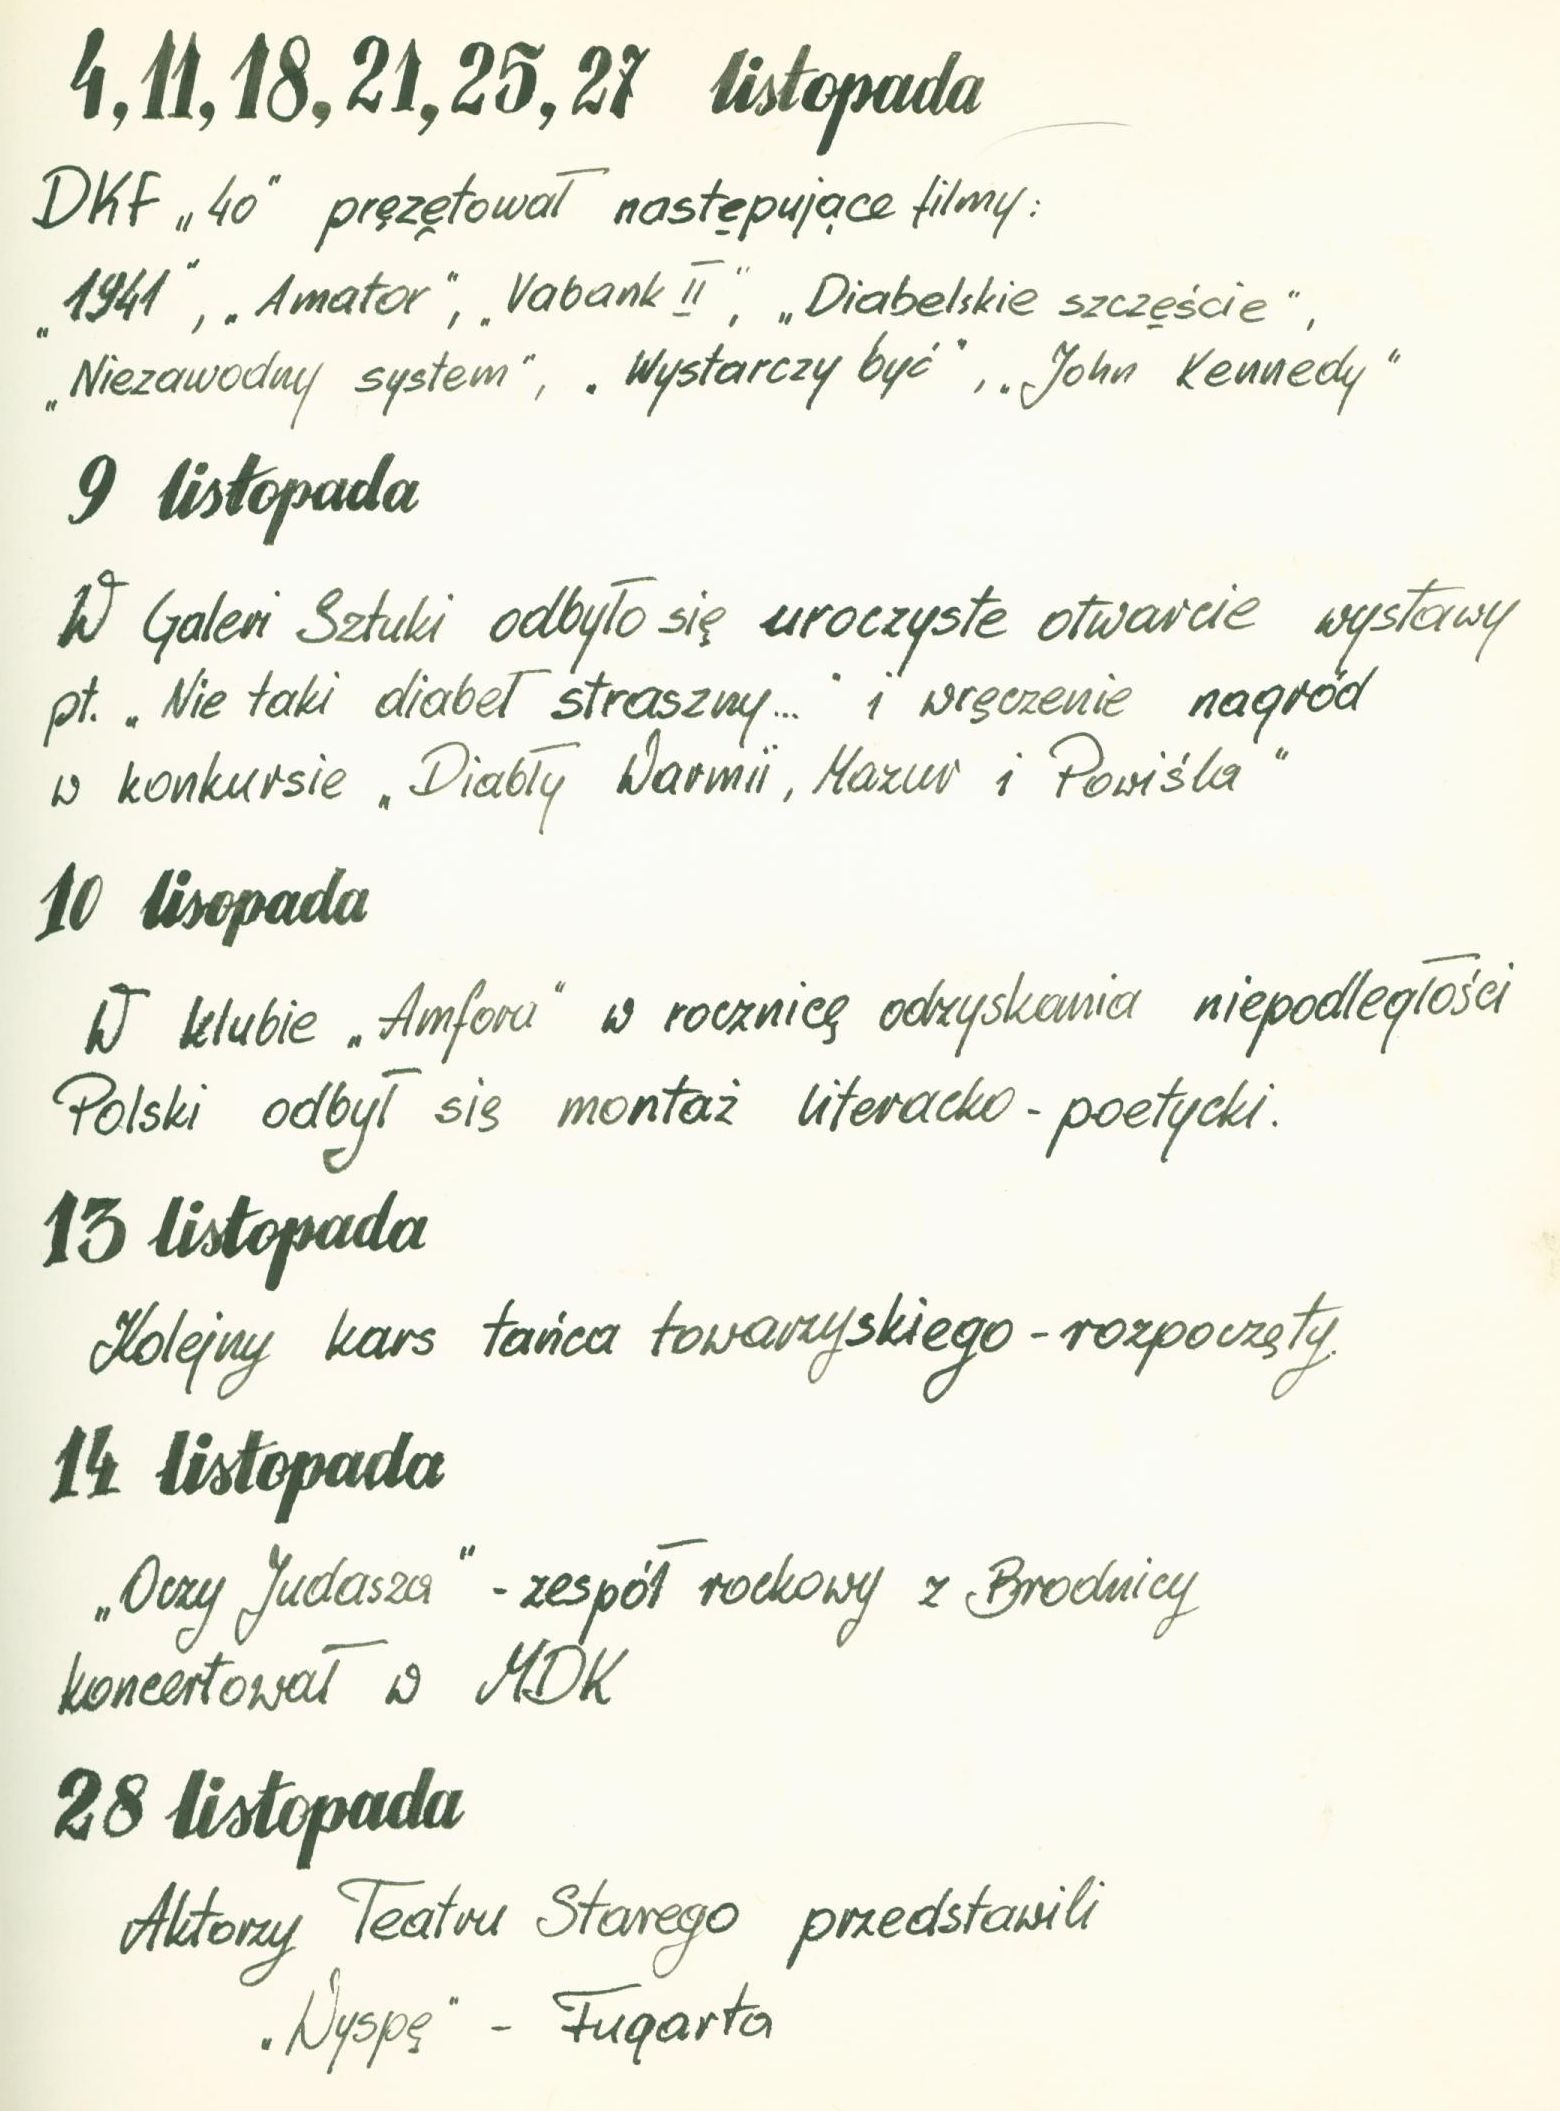 4, 11, 18, 21, 25, 27 listopada
DKF „40" pręzętował następujące filmy:
„1941", „Amator", „Vabank II", „Diabelskie szczęście",
„Niezawodny system", „Wystarczy być", „John Kennedy"
9 listopada
W Galeri Sztuki odbyło się uroczyste otwarcie wystawy
pt. „Nie taki diabeł straszny..." i wręczenie nagród
w konkursie „Diabły Warmii, Mazur i Powiśla"
10 lisopada
W klubie „Amfora" w rocznicę odzyskania niepodległości
Polski odbył się montaż literacko-poetycki.
13 listopada
Kolejny kars tańca towarzyskiego - rozpoczęty.
14 listopada
„Oczy Judasza" - zespół rockowy z Brodnicy
koncertował w MDK
28 listopada
Aktorzy Teatru Starego przedstawili
„Wyspę" - Fugarta